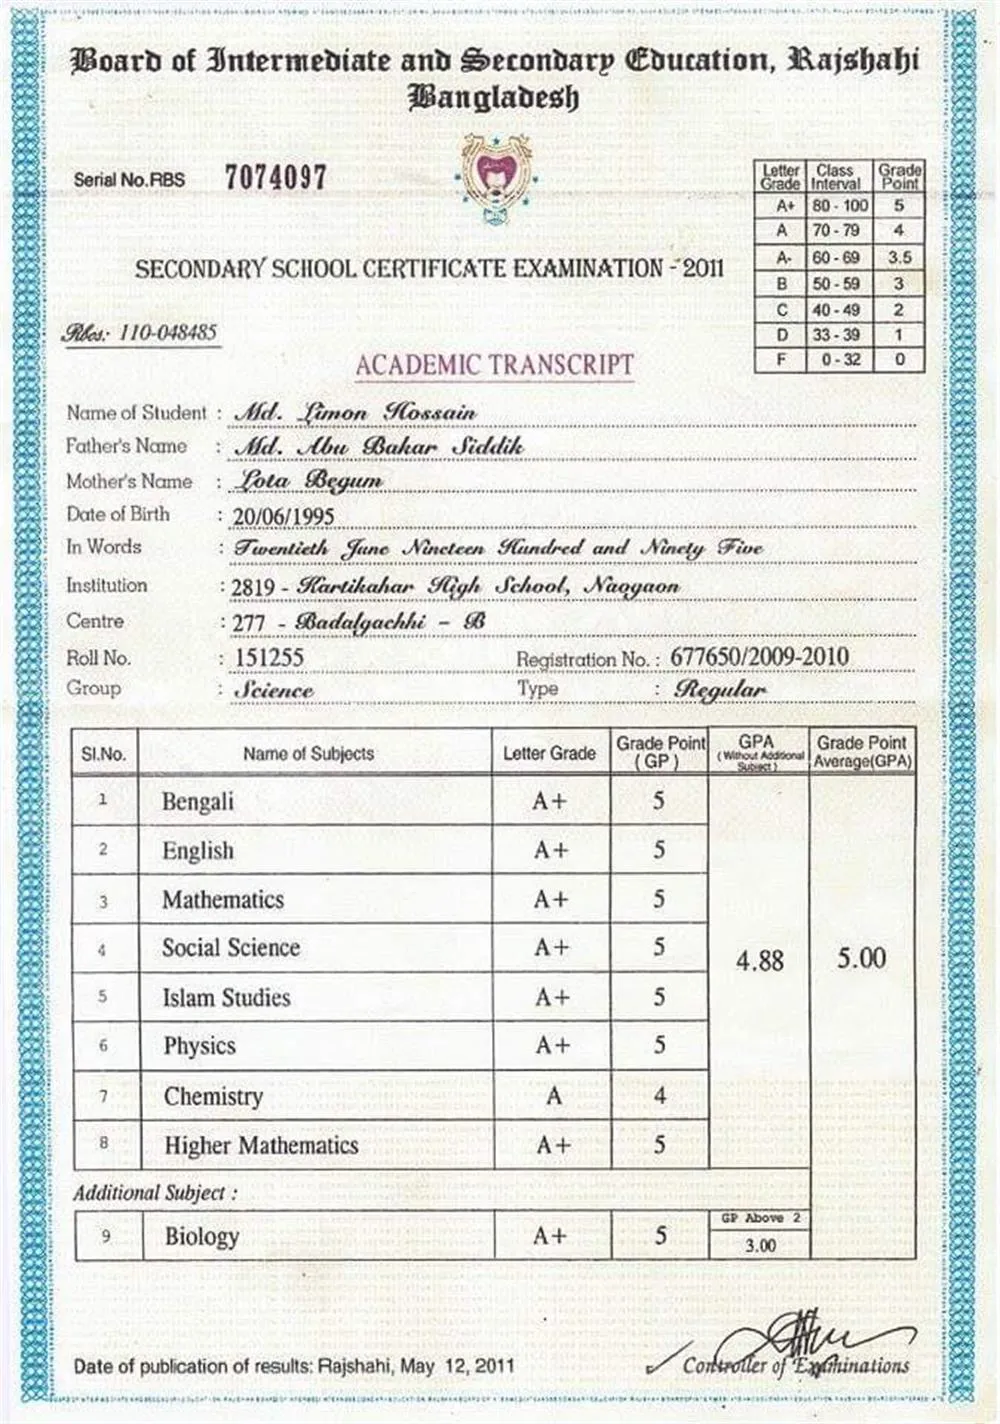 Board of Intermediate and Secondary Education, Rajshahi
Bangladesh
Serial No.RBS 7074097
Letter Grade Class Interval Grade Point
A+ 80 - 100 5
A 70 - 79 4
A- 60 - 69 3.5
B 50 - 59 3
C 40 - 49 2
D 33 - 39 1
F 0 - 32 0
SECONDARY SCHOOL CERTIFICATE EXAMINATION - 2011
Rbcs: 110-048485
ACADEMIC TRANSCRIPT
Name of Student : Md. Limon Hossain
Father's Name : Md. Abu Bakar Siddik
Mother's Name : Lota Begum
Date of Birth : 20/06/1995
In Words : Twentieth June Nineteen Hundred and Ninety Five
Institution : 2819 - Kartikahar High School, Naogaon
Centre : 277 - Badalgachhi - B
Roll No. : 151255 Registration No. : 677650/2009-2010
Group : Science Type : Regular
Sl.No. Name of Subjects Letter Grade Grade Point (GP) GPA (Without Additional Subject) Grade Point Average(GPA)
1 Bengali A+ 5
2 English A+ 5
3 Mathematics A+ 5
4 Social Science A+ 5
4.88 5.00
5 Islam Studies A+ 5
6 Physics A+ 5
7 Chemistry A 4
8 Higher Mathematics A+ 5
Additional Subject :
9 Biology A+ 5 GP Above 2
3.00
Date of publication of results: Rajshahi, May 12, 2011 Controller of Examinations